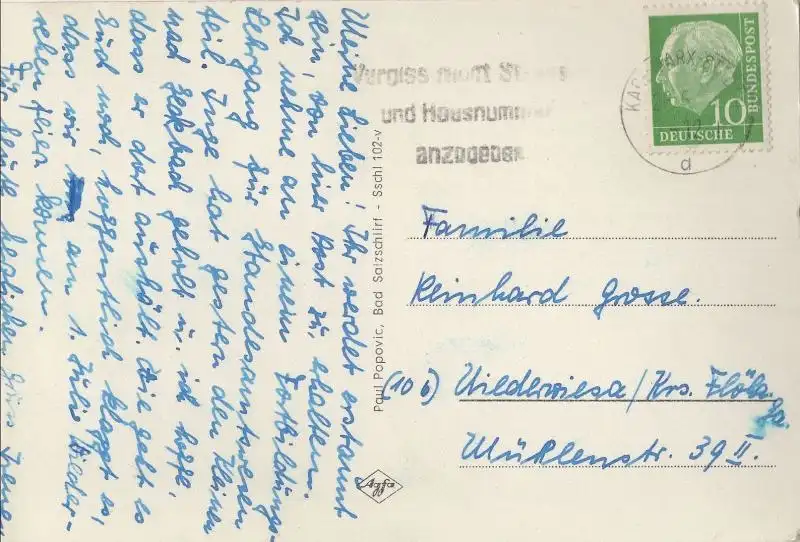 Meine Lieben! Ihr werdet erstaunt
sein, von hier Post zu erhalten.
Ich nehme an einem Fortbildungs-
Lehrgang für Standesamtswesen
teil. Inge hat gestern den Kleinen
nach Heckbad geholt u. ich hoffe,
dass er dort aushält. Wie geht es
Euch noch, hoffentlich klappt es,
dass wir am 1. Juli Wieder-
sehen feiern können.
Für heute herzlichen Gruss Irene
Vergiss nicht
und Hausnummer
anzugeben
KARL
d
10
DEUTSCHE
BUNDESPOST
Paul Popovic, Bad Salzschlirf - Sschl 102-v
Agfa
Familie
Reinhard Grosse.
(10 b) Niederwiesa/Krs. Flöha
Mühlenstr. 39 II.